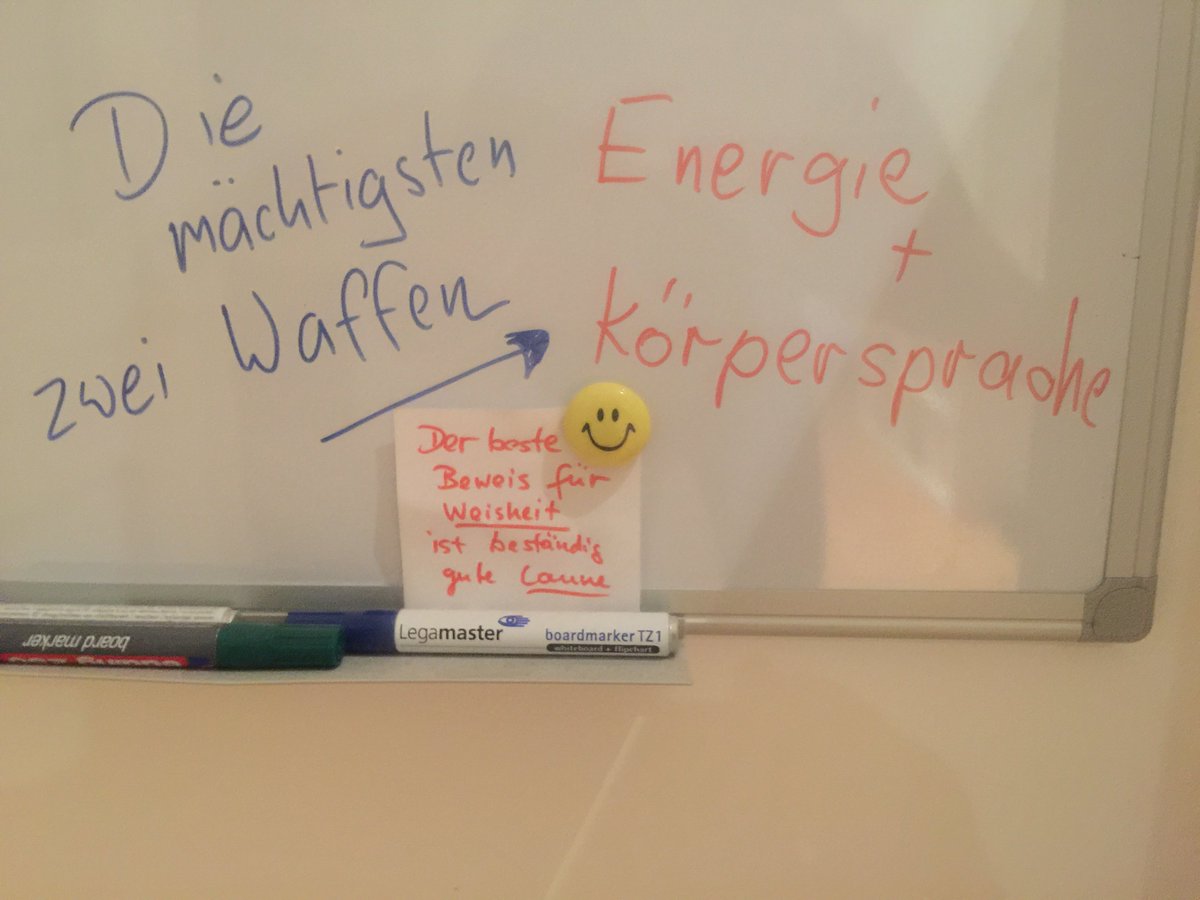 Die
mächtigsten
zwei Waffen
Energie
+
Körpersprache
Der beste
Beweis für
Weisheit
ist beständig
gute Laune
board marker
Legamaster
boardmarker TZ1
whiteboard + flipchart